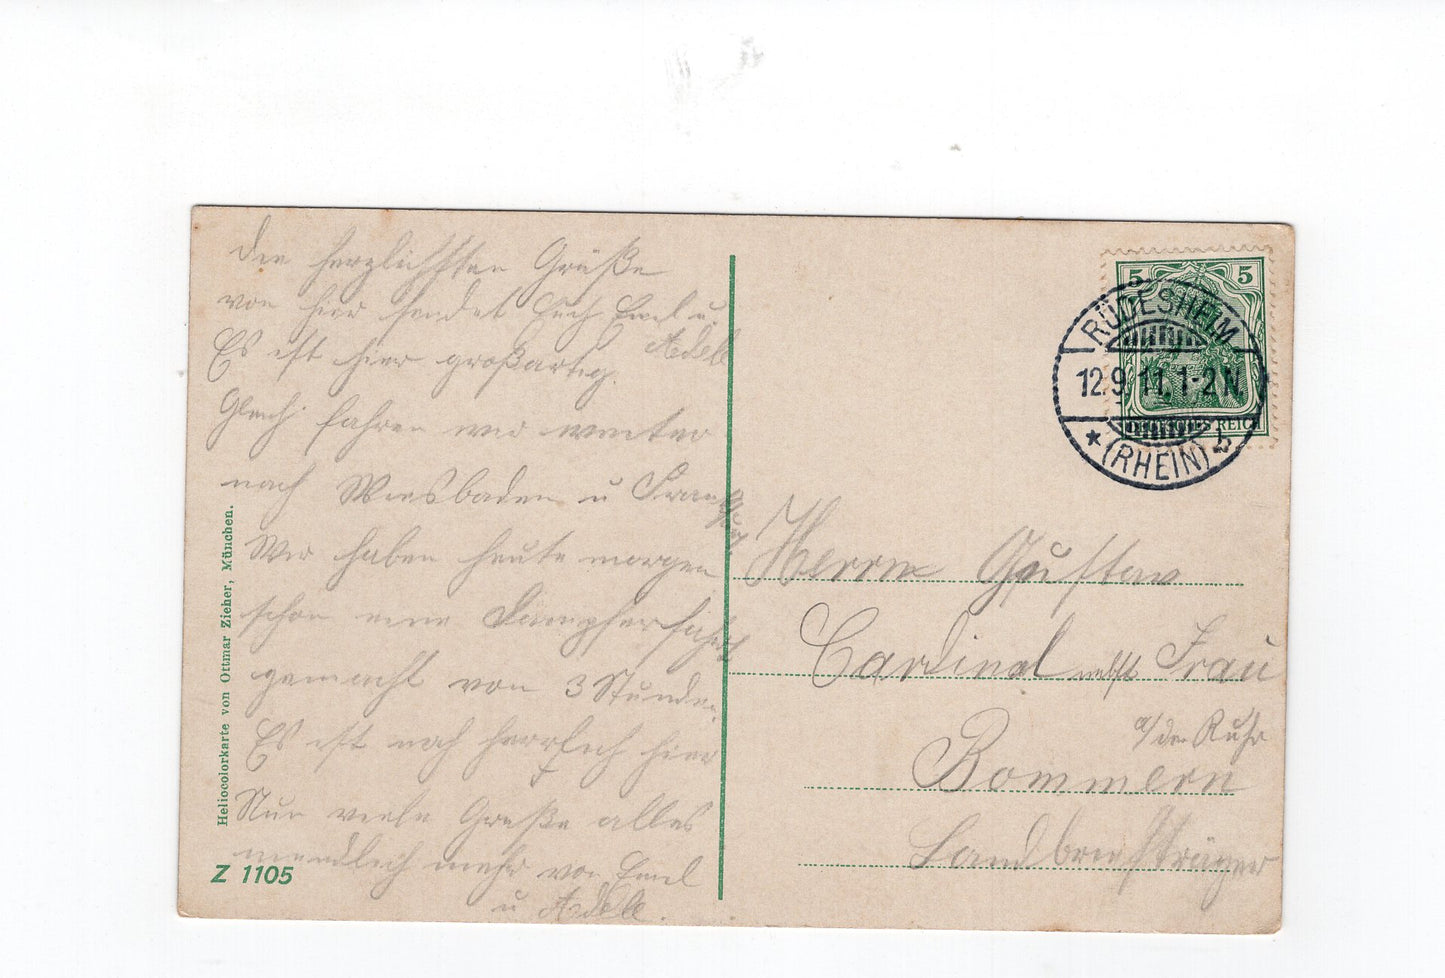 Die herzlichsten Grüße
von hier sendet Euch Emil u.
Adele
Es ist hier großartig.
Gleich fahren wir weiter
nach Wiesbaden u Frankfurt.
Wir haben heute morgen
schon eine Dampferfahrt
gemacht von 3 Stunden.
Es ist noch herrlich hier
Nun viele Grüße alles
mündlich mehr von Emil
u Adele.
Heliocolorkarte von Ottmar Zieher, München.
Z 1105
5 5
DEUTSCHES REICH
RÜDESHEIM
12.9.11.1-2N.
* (RHEIN) b
Herrn Gustav
Cardinal nebst Frau
a/der Ruhr
Bommern
Landbriefträger